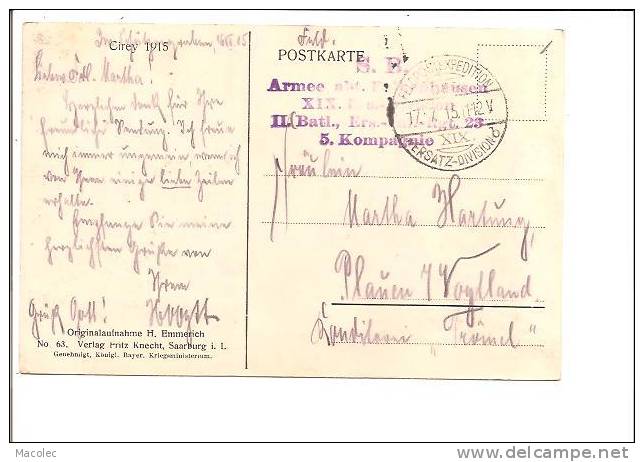 Cirey 1915
Im Schützengraben, 16.VII.15.
Liebes Frl. Martha!
Herzlichen Dank für Ihre
freundliche Sendung. Ich freue
mich immer ungemein wenn ich
von Ihnen einige liebe Zeilen
erhalte.
Empfangen Sie meine
herzlichsten Grüße von
Ihrem
Grüß Gott!
Originalaufnahme H. Emmerich
No 63. Verlag Fritz Knecht, Saarburg i. L.
Genehmigt, Königl. Bayer. Kriegsministerium.
Feld.
POSTKARTE
S. B.
Armee abt.
XIX.
II. Batl., Ers. 23
5. Kompagnie
17.7.15. 11-12V
XIX.
ERSATZ-DIVISION
Fräulein
Martha Hartung,
Plauen i/Vogtland
Konditorei „Trömel"
Macolec
www.delcampe.net